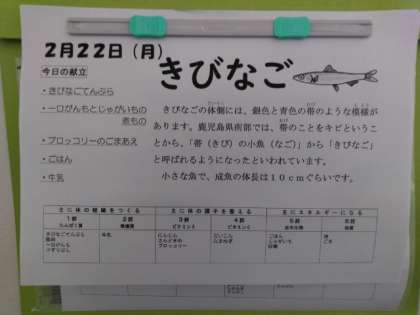 2月22日（月）
きびなご
今日の献立
・きびなごてんぷら
・一口がんもとじゃがいもの
煮もの
・ブロッコリーのごまあえ
・ごはん
・牛乳
きびなごの体側には、銀色と青色の帯のような模様が
あります。鹿児島県南部では、帯のことをキビというこ
とから、「帯（きび）の小魚（なご）」から「きびなご」
と呼ばれるようになったといわれています。
小さな魚で、成魚の体長は10cmぐらいです。
主に体の組織をつくる 主に体の調子を整える 主にエネルギーになる
1群 2群 3群 4群 5群 6群
たんぱく質 無機質 ビタミンA ビタミンC 炭水化物 脂質
きびなごてんぷら 牛乳 にんじん だいこん ごはん 油
さんどまめ たまねぎ じゃがいも ごま
一口がんも ブロッコリー 砂糖